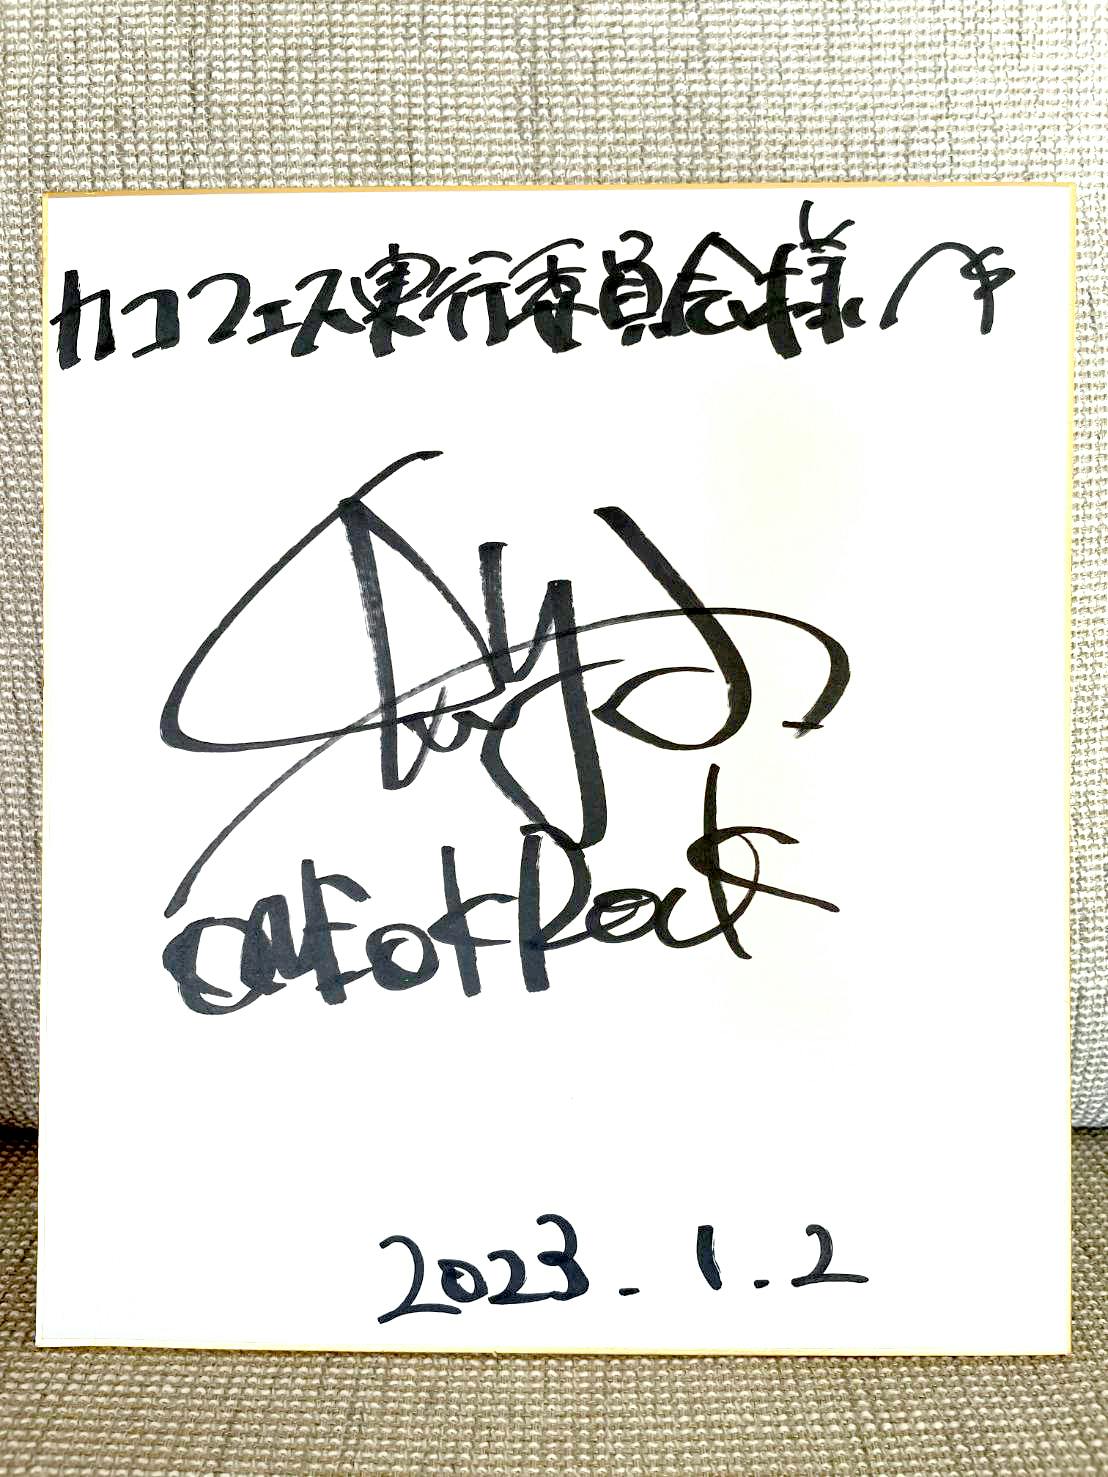 カコフェス実行委員会様へ
ONE OK Rock
2023.1.2